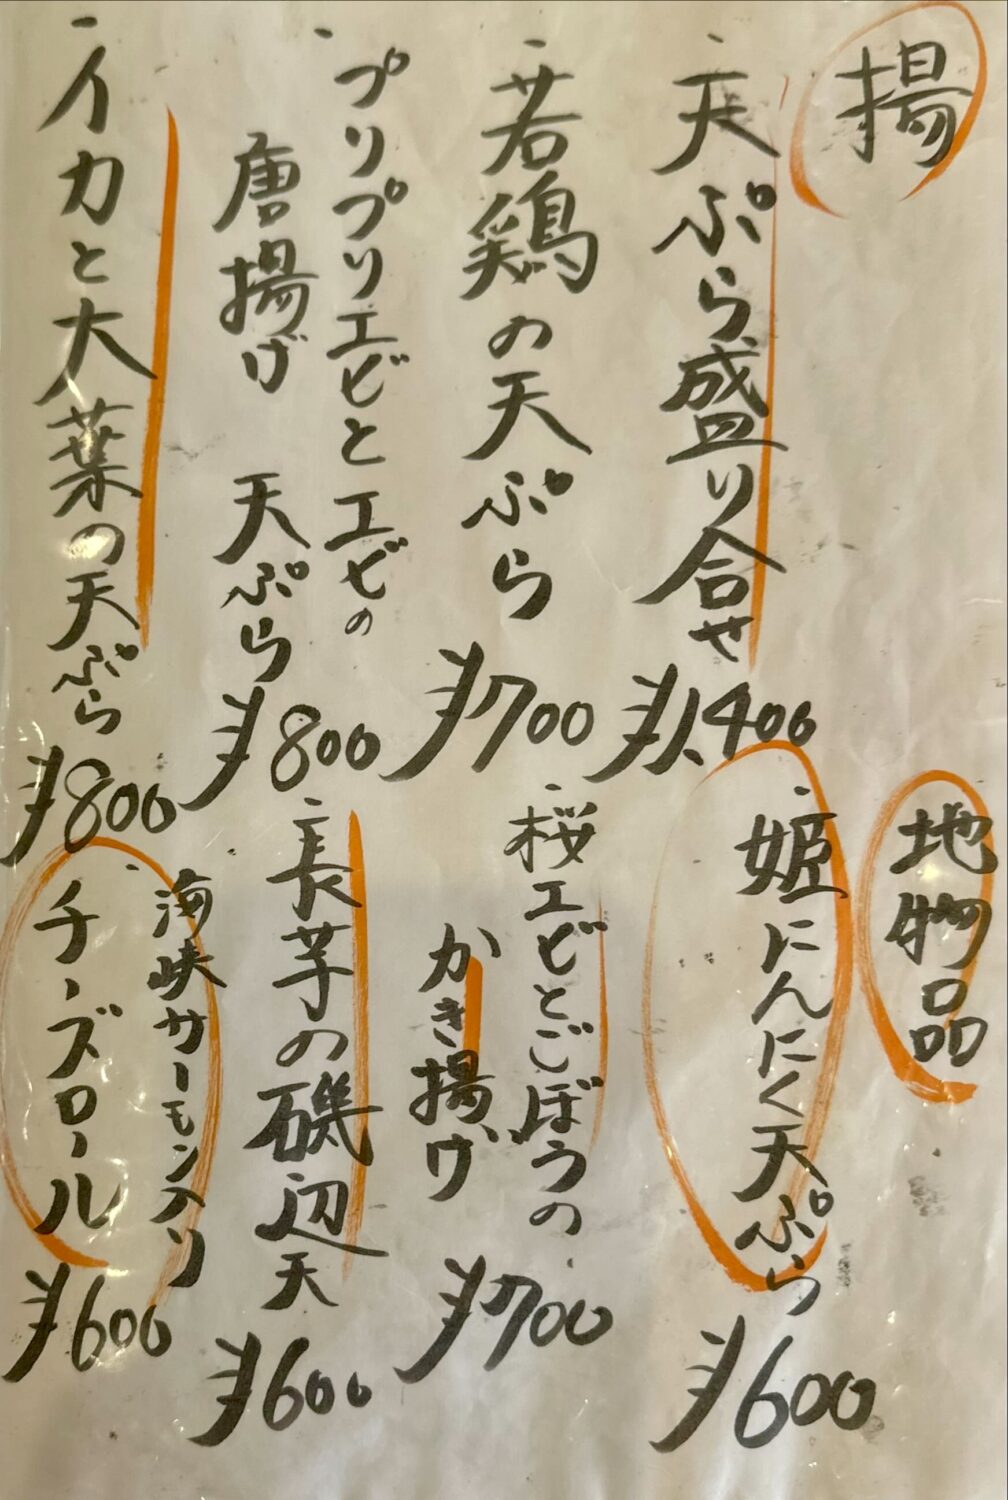 揚
・天ぷら盛り合せ ¥1,400
・若鶏の天ぷら ¥700
・プリプリエビとエビの
唐揚げ 天ぷら ¥800
・イカと大葉の天ぷら ¥800
地物品
・姫にんにく天ぷら ¥600
・桜エビとごぼうの
かき揚げ ¥700
・長芋の磯辺天 ¥600
・海峡サーモン入り
チーズロール ¥600